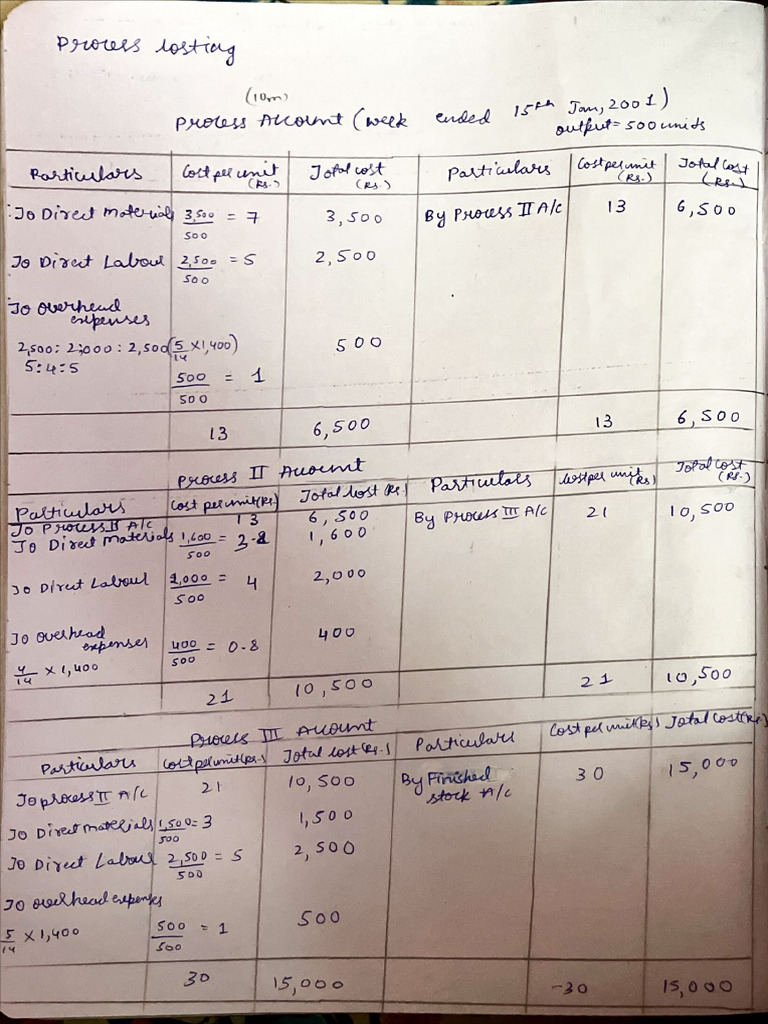 Process Costing
(10m)
Process Account (week ended 15th Jan, 2001)
output = 500 units
Particulars Cost per unit (Rs.) Total cost (Rs.) Particulars Cost per unit (Rs.) Total Cost (Rs.)
To Direct Materials 3,500/500 = 7 3,500 By Process II A/c 13 6,500
To Direct Labour 2,500/500 = 5 2,500
To overhead
expenses
2,500 : 2,000 : 2,500 (5/14 × 1,400) 500
5:4:5
500/500 = 1
13 6,500 13 6,500
Process II Account
Particulars Cost per unit (Rs.) Total Cost (Rs.) Particulars Cost per unit (Rs) Total Cost (Rs.)
To Process II A/c 13 6,500 By Process III A/c 21 10,500
To Direct Materials 1,600/500 = 3.2 1,600
To Direct Labour 2,000/500 = 4 2,000
To overhead
expenses 400/500 = 0.8 400
4/14 × 1,400
21 10,500 21 10,500
Process III Account
Particulars Cost per unit (Rs.) Total cost (Rs.) Particulars Cost per unit (Rs) Total Cost (Rs.)
To process II A/c 21 10,500 By Finished 30 15,000
stock A/c
To Direct materials 1,500/500 = 3 1,500
To Direct Labour 2,500/500 = 5 2,500
To overhead expenses
5/14 × 1,400 500/500 = 1 500
30 15,000 -30 15,000